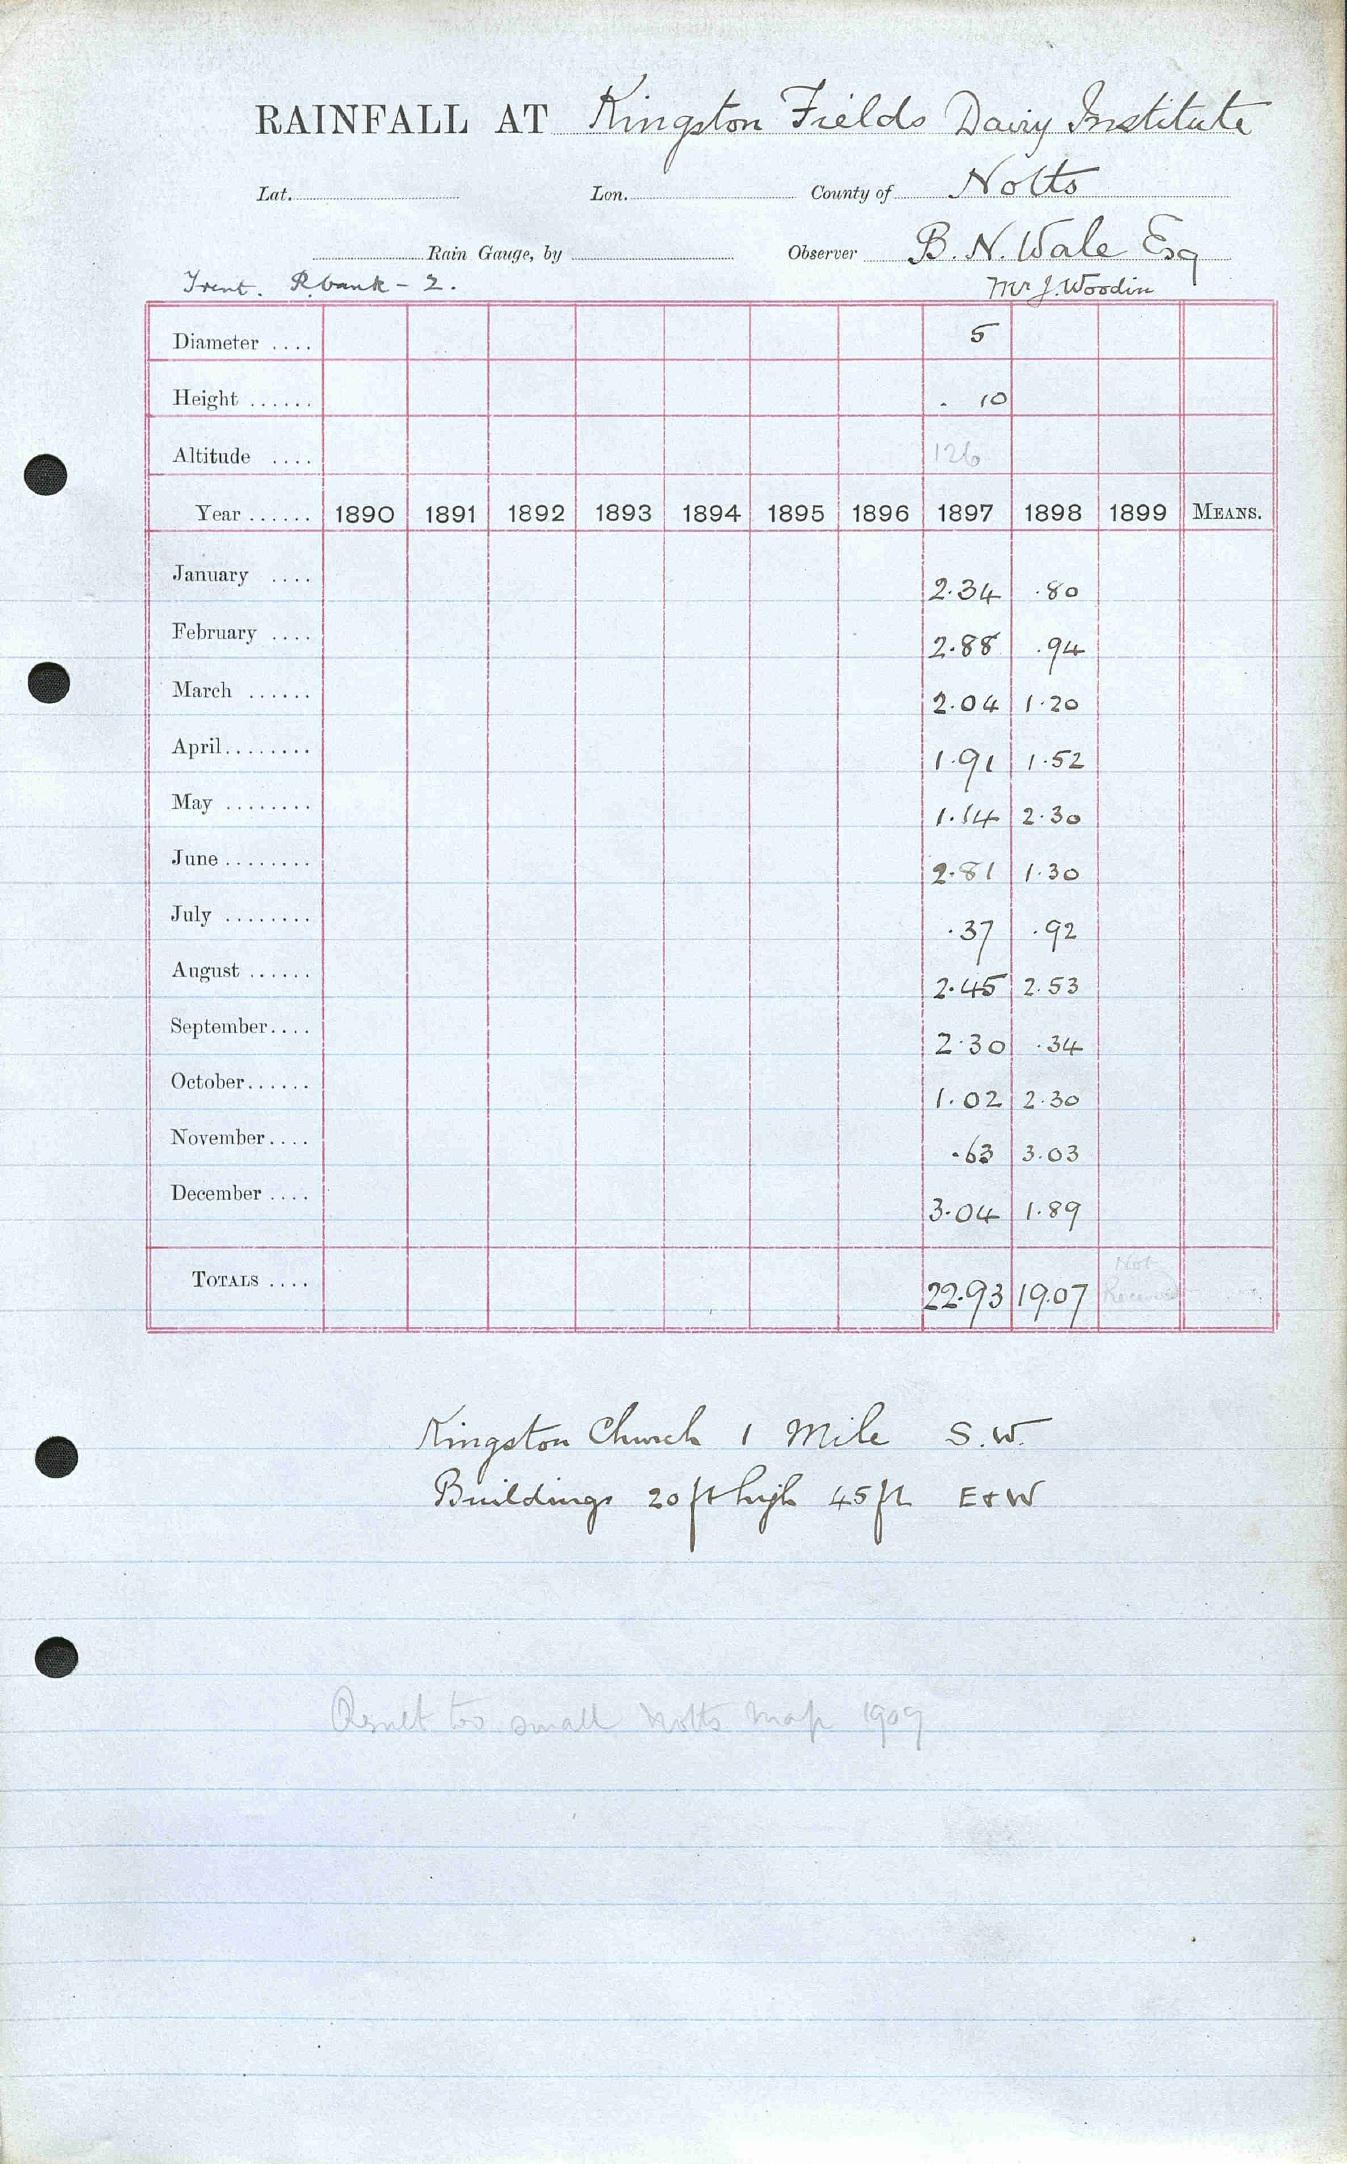 RAINFALL AT Kingston Fields Dairy Institute
Lat. Lon. County of Notts
Rain Gauge, by Observer B. N. Wale Esq
Trent. R bank - 2. Mr J. Woodin
Diameter .... 5
Height ...... . 10
Altitude .... 126
Year ...... 1890 1891 1892 1893 1894 1895 1896 1897 1898 1899 MEANS.
January .... 2.34 .80
February .... 2.88 .94
March ...... 2.04 1.20
April........ 1.91 1.52
May ........ 1.14 2.30
June ........ 2.81 1.30
July ........ .37 .92
August ...... 2.45 2.53
September.... 2.30 .34
October...... 1.02 2.30
November.... .63 3.03
December .... 3.04 1.89
TOTALS .... 22.93 19.07 Not Received
Kingston Church 1 Mile S.W.
Buildings 20 ft high 45 ft E & W
Result too small Notts Map 1909